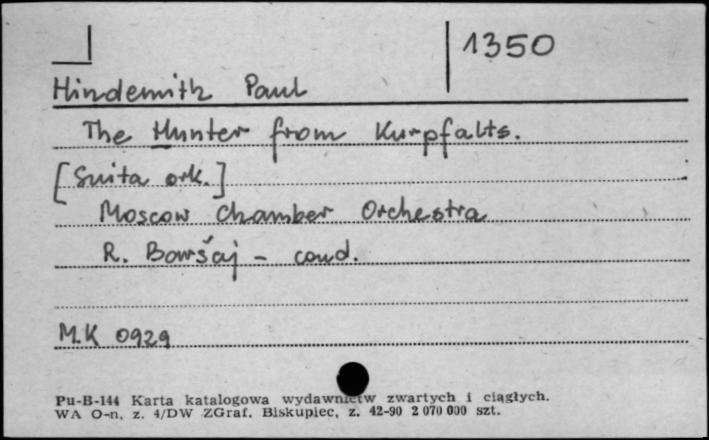 1350
Hindemith Paul
The Hunter from Kurpfalts.
[Suita ork.]
Moscow Chamber Orchestra
R. Baršaj - cond.
M.K 0929
Pu-B-144 Karta katalogowa wydawnictw zwartych i ciągłych.
WA O-n. z. 4/DW ZGraf. Biskupiec, z. 42-90 2 070 000 szt.